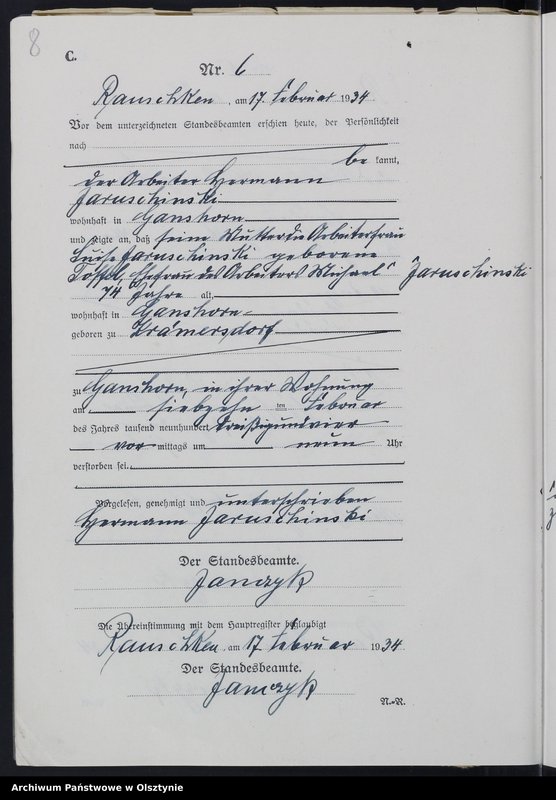 8
C.
Nr. 6
Rauschken, am 17. Februar 1934
Vor dem unterzeichneten Standesbeamten erschien heute, der Persönlichkeit
nach
be kannt,
der Arbeiter Hermann
Jaruschinski
wohnhaft in Ganshorn
und zeigte an, daß seine Mutter die Arbeiterfrau
Luise Jaruschinski geborene
Toffel, Ehefrau des Arbeiters Michael Jaruschinski
74 Jahre alt,
wohnhaft in Ganshorn
geboren zu Krämersdorf
zu Ganshorn, in ihrer Wohnung
am siebzehn ten Februar
des Jahres tausend neunhundert dreißigundvier
vor mittags um neun Uhr
verstorben sei.
Vorgelesen, genehmigt und unterschrieben
Hermann Jaruschinski
Der Standesbeamte.
Janczyk
Die Übereinstimmung mit dem Hauptregister beglaubigt
Rauschken, am 17. Februar 1934
Der Standesbeamte.
Janczyk
N.-R.
Archiwum Państwowe w Olsztynie